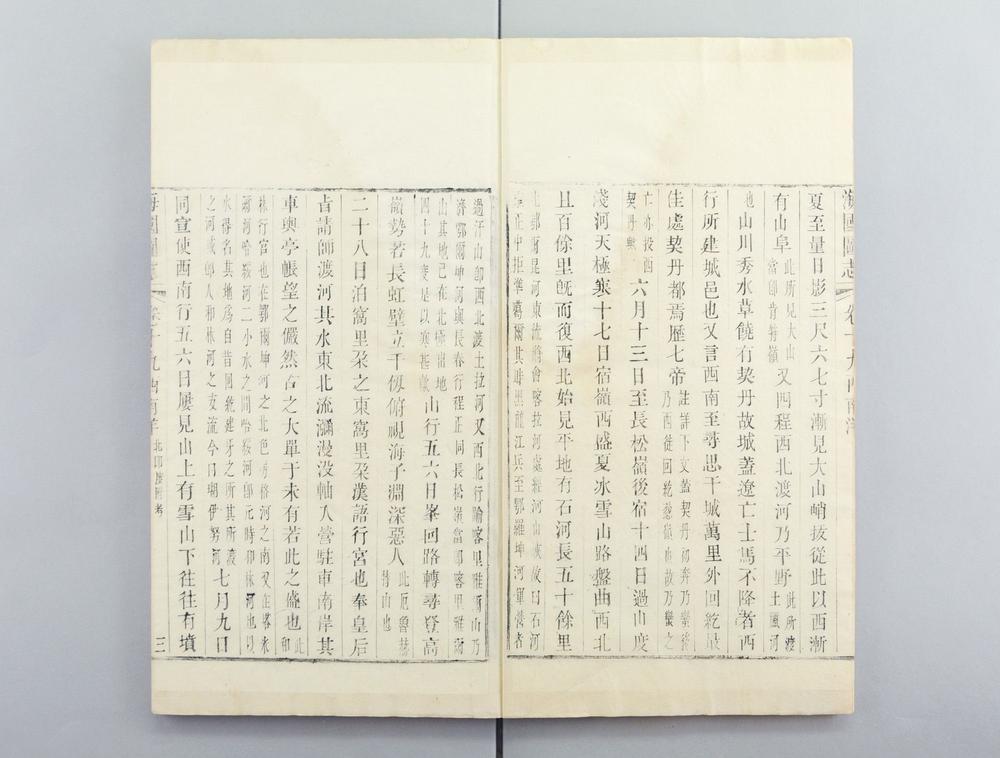 海國圖志 卷二十九西南洋
夏至量日影三尺六七寸漸見大山峭拔從此以西漸
有山阜
此所見大山
當卽肯特嶺
又四程西北渡河乃平野
此所渡
土臘河
也
山川秀水草饒有契丹故城蓋遼亡士馬不降者西
行所建城邑也又言西南至尋思干城萬里外回紇最
佳處契丹都焉歷七帝
註詳下文蓋契丹初奔乃蠻後
乃西徙回紇葱嶺也故乃蠻之
亡亦投西
契丹歟
六月十三日至長松嶺後宿十四日過山度
淺河天極寒十七日宿嶺西盛夏冰雪山路盤曲西北
且百餘里旣而復西北始見平地有石河長五十餘里
此鄂爾昆河東流將會喀拉河處經河山峽故曰石河
雍正中拒準噶爾其時黑龍江兵至鄂羅坤河軍營者
過汗山卽西北渡土拉河又西北行踰喀里雅爾山乃
濟鄂爾坤河與長春行程正同長松嶺當卽喀里雅爾
山其地已在北極出地
四十九度是以寒甚歟
山行五六日峯回路轉尋登高
嶺勢若長虹壁立千仞俯視海子淵深恐人
此厄魯赫
特山也
二十八日泊窩里朶之東窩里朶漢語行宮也奉皇后
旨請師渡河其水東北流瀰漫没軸入營駐車南岸其
車輿亭帳望之儼然古之大單于未有若此之盛也
此
和
林行宮也在鄂爾坤河之北色楞格河之南又在塔米
爾河哈綏河二小水之間哈綏河卽元時和林河也以
水得名其地爲自昔回紇建牙之所其所渡
之河或卽入和林河之支流今曰瑚伊努河
七月九日
同宣使西南行五六日屢見山上有雪山下往往有墳
海國圖志 卷二十九西南洋 北印度附考 三